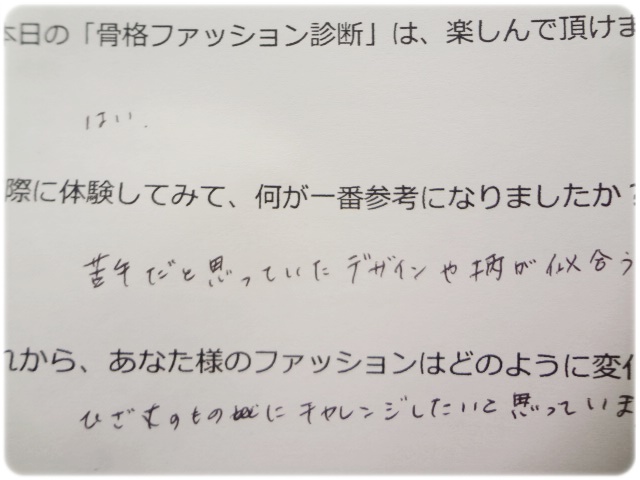 本日の「骨格ファッション診断」は、楽しんで頂けま
はい.
際に体験してみて、何が一番参考になりましたか？
苦手だと思っていたデザインや柄が似合う
れから、あなた様のファッションはどのように変化
ひざ丈のものにチャレンジしたいと思っていま